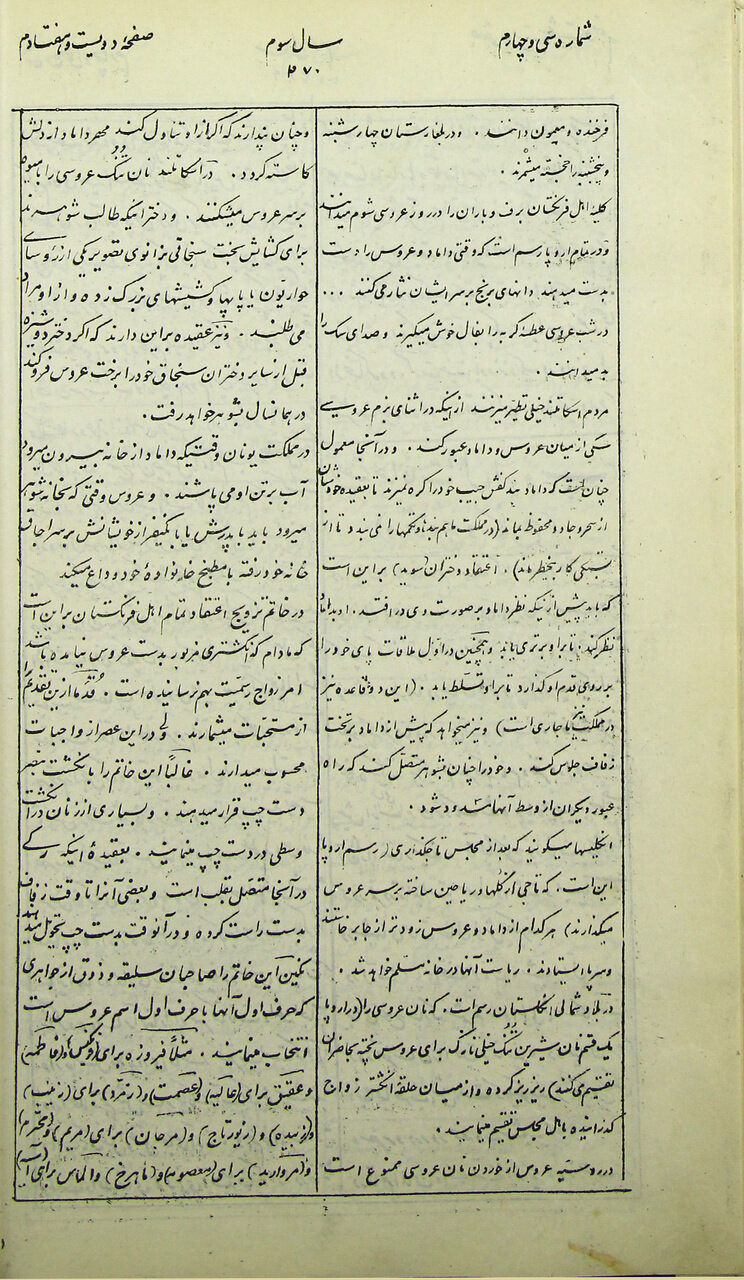 شماره سی و چهارم
سال سوم
صفحهٔ دویست و هفتادم
۲۷۰
فرخنده و میمون دانند . و در بلغارستان چهارشنبه
و پنجشنبه را خجسته میشمرند .
کلیهٔ اهل فرنگستان برف و باران را در روز عروسی شوم میدانند
و در تمام اروپا رسم است که وقتی داماد و عروس را دست
بدست میدهند دانهای برنج بر سر ایشان نثار می کنند ...
در شب عروسی عطسهٔ گربه را بفال خوش میگیرند و صدای سگ را
بد میدانند .
مردم اسکاتلند خیلی تطیر میزنند از اینکه در اثنای بزم عروسی
سگی از میان عروس و داماد عبور کند . و در آنجا معمول
چنان است که داماد بند کفش چپ خود را گره نمیزند تا بعقیده خودشان
از سحر و جادو محفوظ بماند (در مملکت ما هم بند و تکمها را نمی بندد تا از
بستگی کار بیخطر ماند) . اعتقاد دختران (سوید) بر این است
که باید پیش از آنکه نظر داماد بر صورت وی در افتد . او بداماد
نظر کند . تا بر او برتری یابد و همچنین در اول ملاقات پای خود را
بر روی قدم او گذارد تا بر او تسلط یابد . (این دو قاعده نیز
در مملکت ما جاری است) و نیز میخواهد که پیش از داماد بر تخت
زفاف جلوس کند . و خود را چنان بشوهر متصل کند که راه
عبور دیگران از وسط آنها مسدود شود .
انگلیسها میگویند که بعد از مجلس تاجگذاری (رسم اروپا
این است . که تاجی از گلها و ریاحین ساخته بر سر عروس
میگذارند) هر کدام از داماد و عروس زودتر از جا برخاستند
و سرپا ایستادند . ریاست آنها در خانه مسلم خواهد شد .
در بلاد شمالی انگلستان رسم است . که نان عروسی را (در اروپا
یک قسم نان شیرین تنک خیلی نازک برای عروس پخته بحاضران
تقسیم می کنند) ریز ریز کرده و از میان حلقهٔ انگشتر زواج
گذرانیده باهل مجلس تقسیم مینمایند .
در روسیه عروس از خوردن نان عروسی ممنوع است
و چنان پندارند که اگر از او تناول کند مهر داماد از دلش
کاسته گردد . در اسکاتلند نان تنک عروسی را با میوه
بر سر عروس میشکنند . و دخترانیکه طالب شوهرند
برای گشایش بخت سنجاقی بزانوی تصویر یکی از رؤسای
حواریون یا پاپها و کشیشهای بزرگ زده و از او مراد
می طلبند . و نیز عقیده بر این دارند که اگر دختر دوشیزه
قبل از سایر دختران سنجاق خود را بر رخت عروس فرو کند
در همان سال بشوهر خواهد رفت .
در مملکت یونان وقتیکه داماد از خانه بیرون میرود
آب بر تن او می پاشند . و عروس وقتی که بخانه شوهر
میرود باید با پدرش یا با یکنفر از خویشانش بر سر اجاق
خانه خود رفته با مطبخ خانوادهٔ خود وداع میکند
در خاتم تزویج اعتقاد تمام اهل فرنگستان بر این است
که مادام که انگشتری مزبور بدست عروس نیامده باشد
امر زواج رسمیت بهم نرسانیده است . قدما از این تقدیم را
از مستحبات میشمارند . ولی در این عصر از واجبات
محسوب میدارند . غالباً این خاتم را بانگشت بنصر
دست چپ قرار میدهند . و بسیاری از زنان در انگشت
وسطی در دست چپ مینمایند . بعقیدهٔ اینکه رگی
در آنجا متصل بقلب است و بعضی آنرا تا وقت زفاف
بدست راست کرده و در آنوقت بدست چپ تحویل میدهند
نگین این خاتم را صاحبان سلیقه و ذوق از جواهری
که حرف اول آنها با حرف اول اسم عروس است
انتخاب مینمایند . مثلاً فیروزه برای (فرنگیس) و (فاطمه)
و عقیق برای (عالیه) و (عصمت) و (زمرّد) برای (زینب)
و (زبیده) و (زیورتاج) و (مرجان) برای (مریم) و (محترم)
و (مروارید) برای (معصومه) و (ماهرخ) و الماس برای (آسیه)